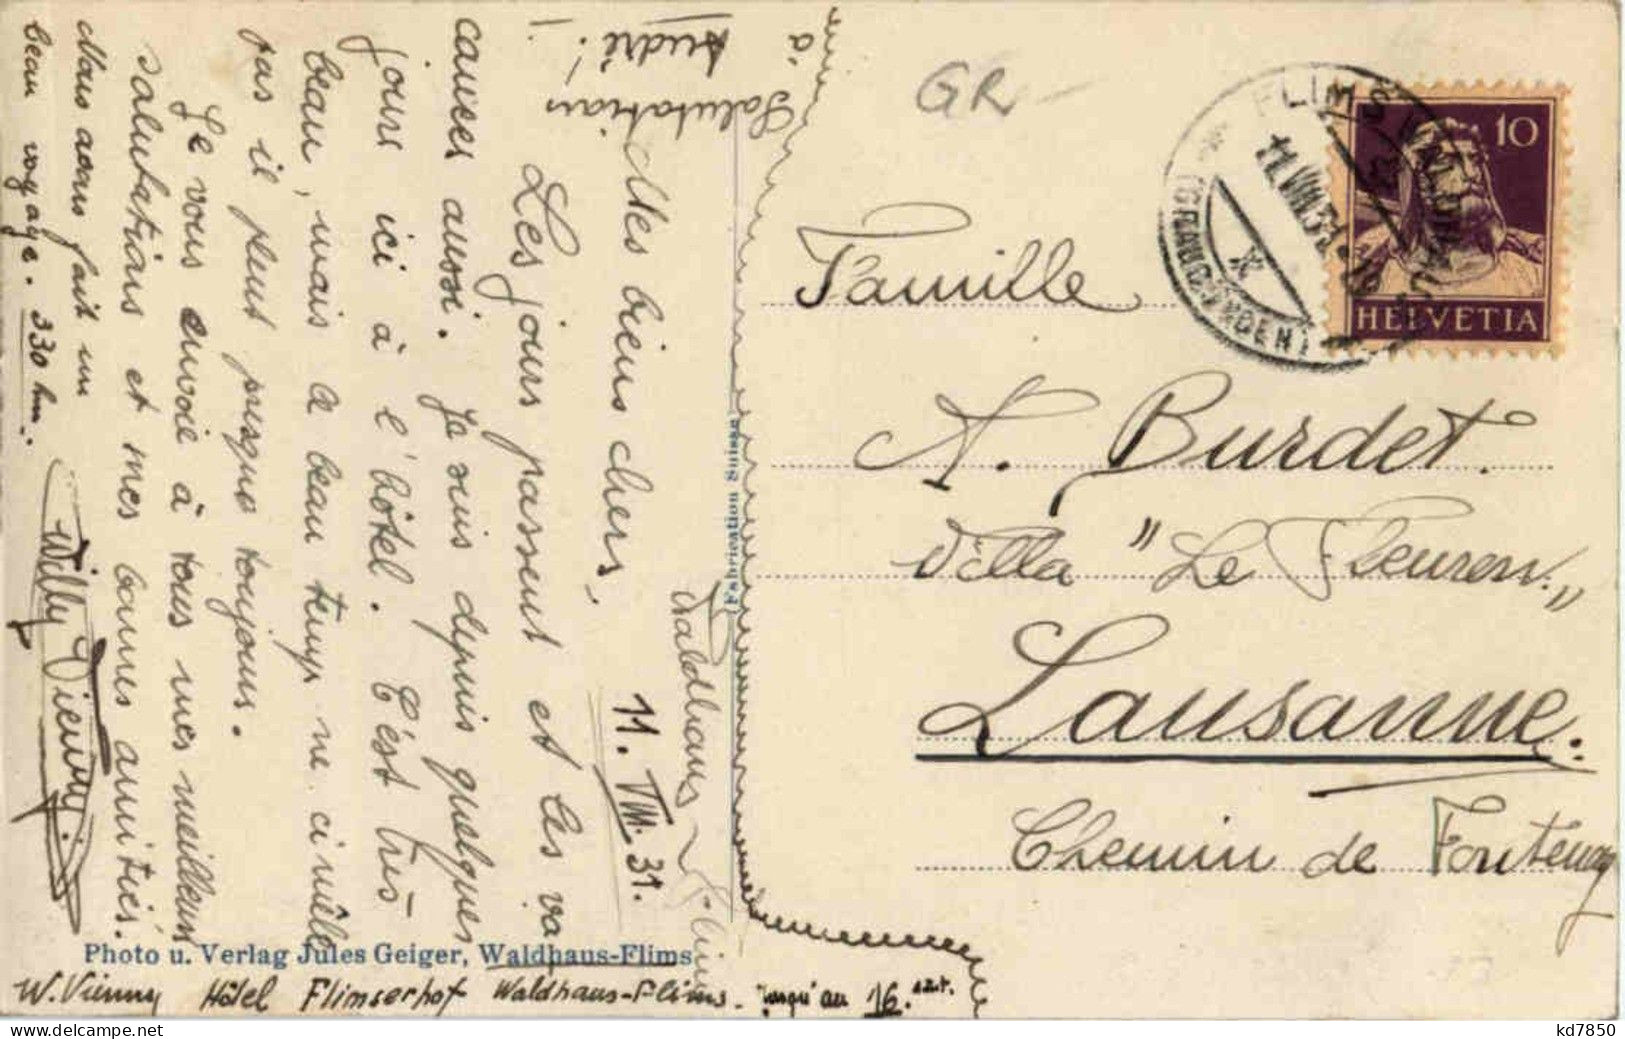 Waldhaus-Flims
11. VIII. 31.
Mes biens chers,
Les jours passent et les va
cances aussi. Je suis depuis quelques
jours ici à l'hôtel. C'est très
beau, mais le beau temps ne
pas il pleut presque toujours.
Je vous envoie à tous mes meilleurs
salutations et mes bonnes amitiés.
Nous avons fait un
beau voyage. 330 km.
Willy Vienny.
Salutations
à
André!
Fabrication Suisse
Photo u. Verlag Jules Geiger, Waldhaus-Flims
W. Vienny Hôtel Flimserhof Waldhaus-Flims - jusqu'au 16. août.
GR
FLIMS WALDHAUS
11.VIII.31
(GRAUBÜNDEN)
10
HELVETIA
Famille
A. Burdet.
Villa "Le Fleuron."
Lausanne.
Chemin de Fontenay
kd7850